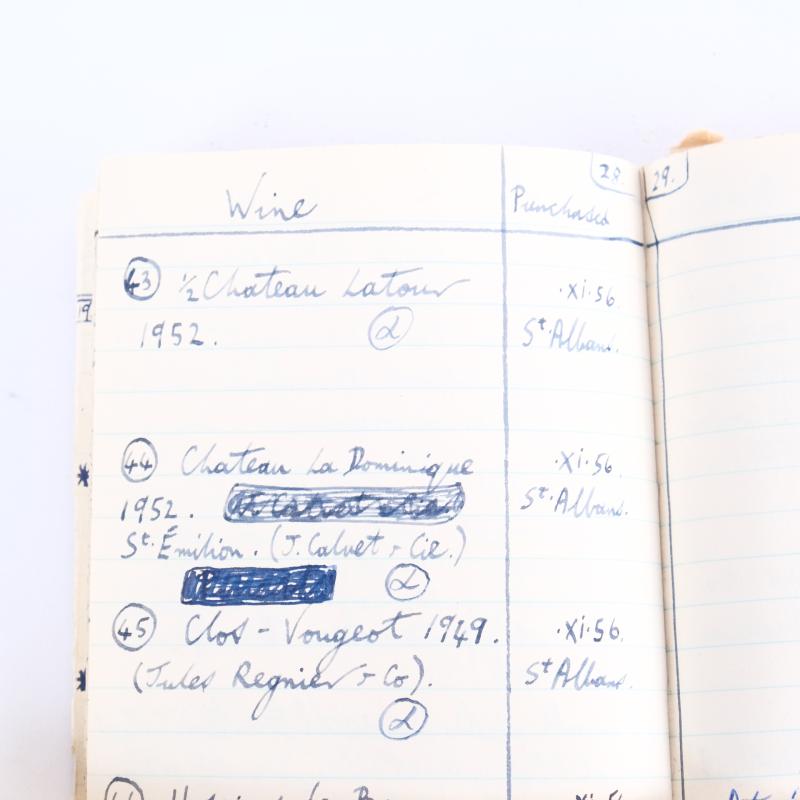 28. 29.
Wine Purchased
43 ½ Chateau Latour ·xi·56.
1952. α St. Albans.
19
44 Chateau La Dominique ·xi·56.
1952. St. Albans.
St. Émilion. (J. Calvet & Cie.)
α
45 Clos - Vougeot 1949. ·xi·56.
(Jules Regnier & Co). St Albans.
α
xi·56